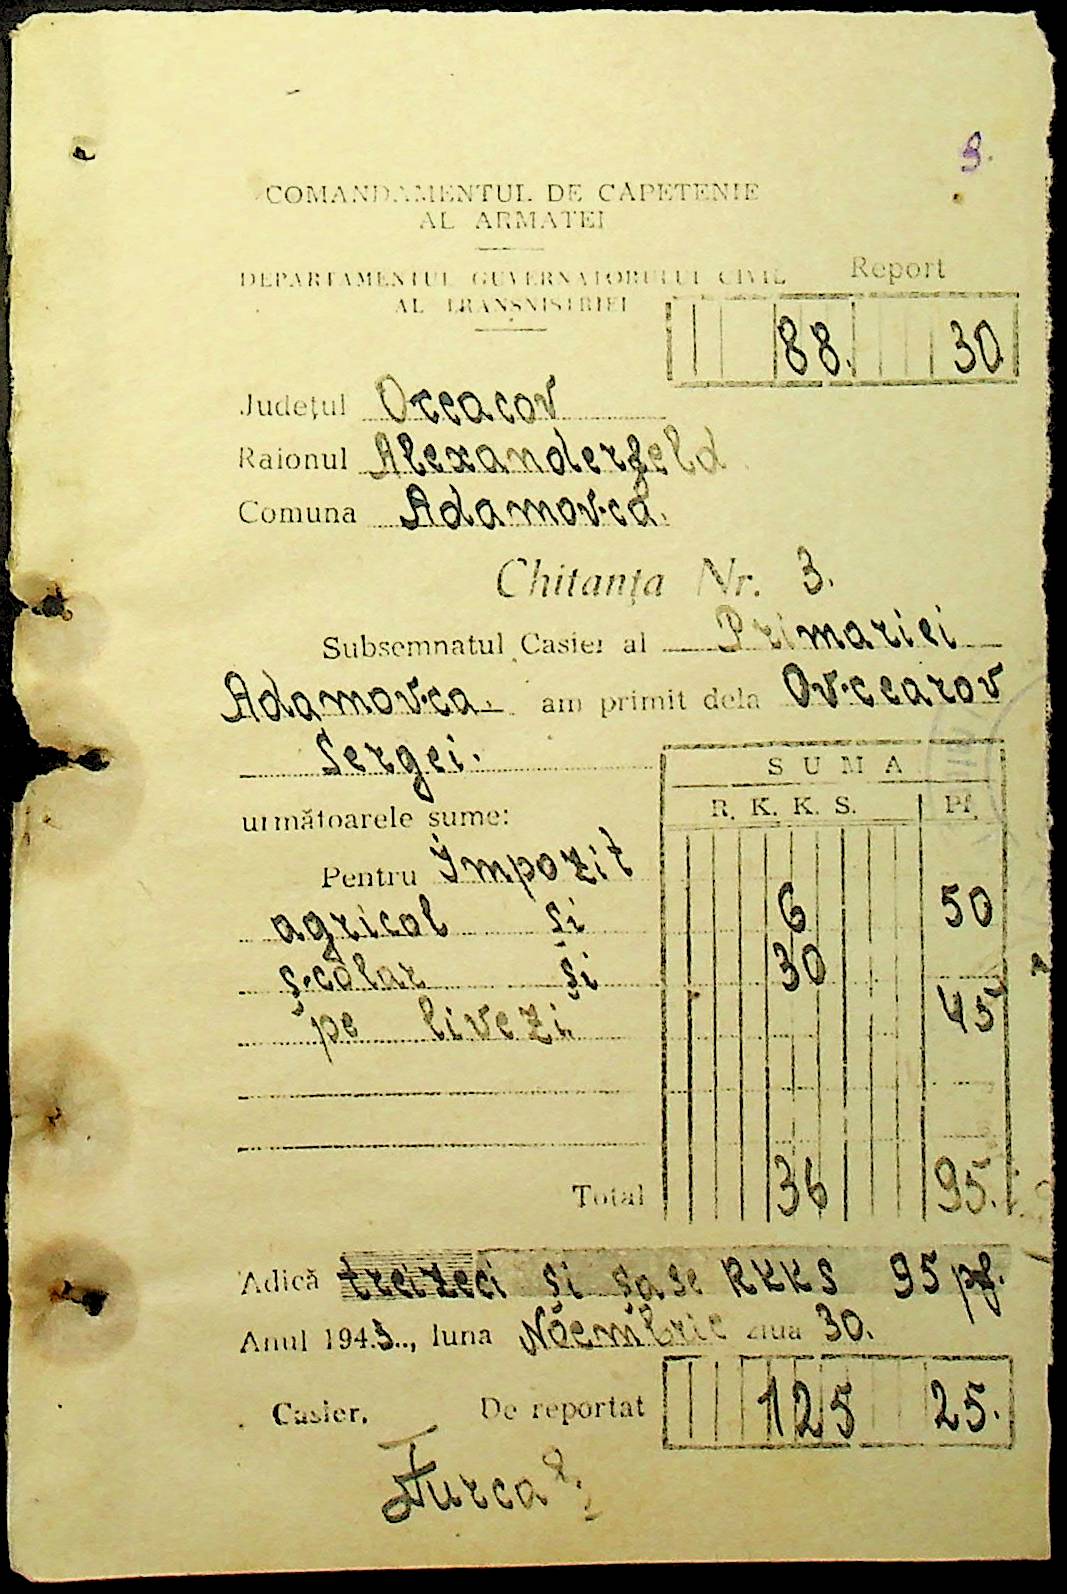 9.
COMANDAMENTUL DE CĂPETENIE
AL ARMATEI
DEPARTAMENTUL GUVERNATORULUI CIVIL
AL TRANSNISTRIEI
Report
88. 30
Județul Oceacov
Raionul Alexanderfeld
Comuna Adamovca.
Chitanța Nr. 3.
Subsemnatul Casier al Primariei
Adamovca. am primit dela Ovcearov
Sergei.
SUMA
R. K. K. S. Pf.
următoarele sume:
Pentru Impozit
agricol și 6 50
școlar și 30
pe livezi. 45
Total 36 95.
Adică treizeci și șase RKKS 95 pf.
Anul 1943.., luna Noembrie ziua 30.
Casier, De reportat 125 25.
Turca